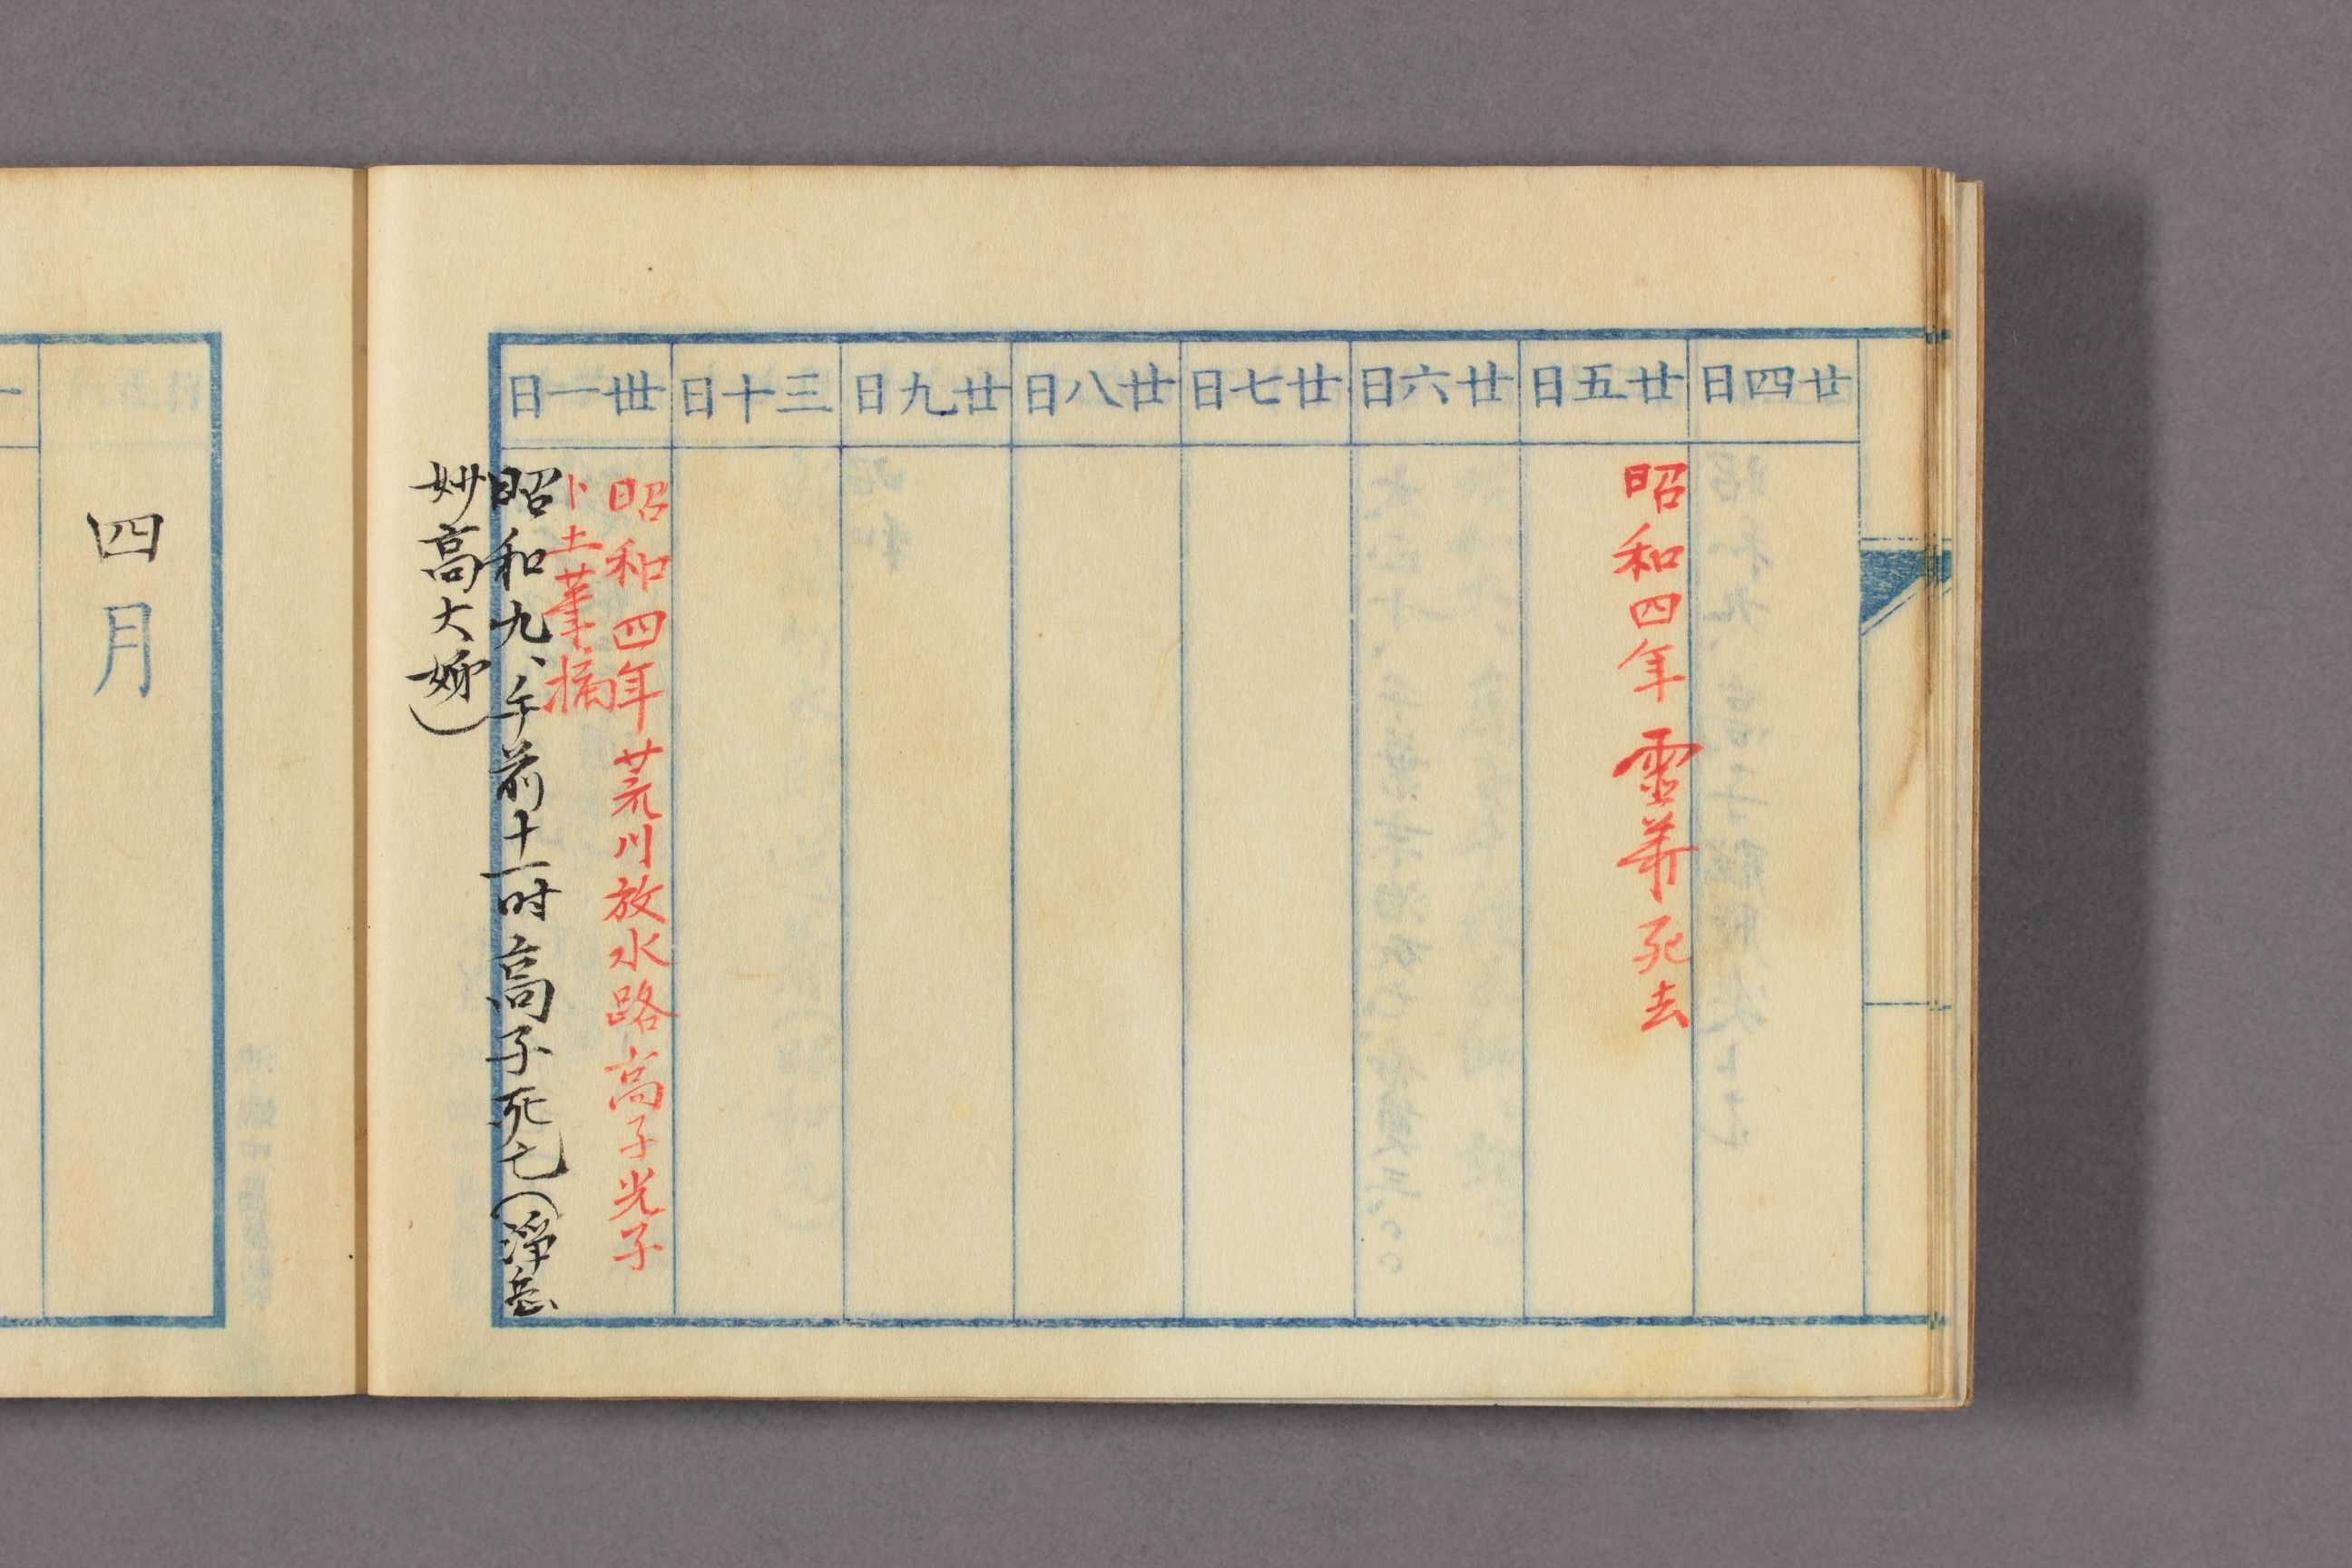 廿四日
廿五日
昭和四年 靈華死去
廿六日
廿七日
廿八日
廿九日
三十日
卅一日
昭和四年荒川放水路高子光子
ト土筆摘
昭和九、午前十一时高子死亡(淨岳
妙高大姉)
四月